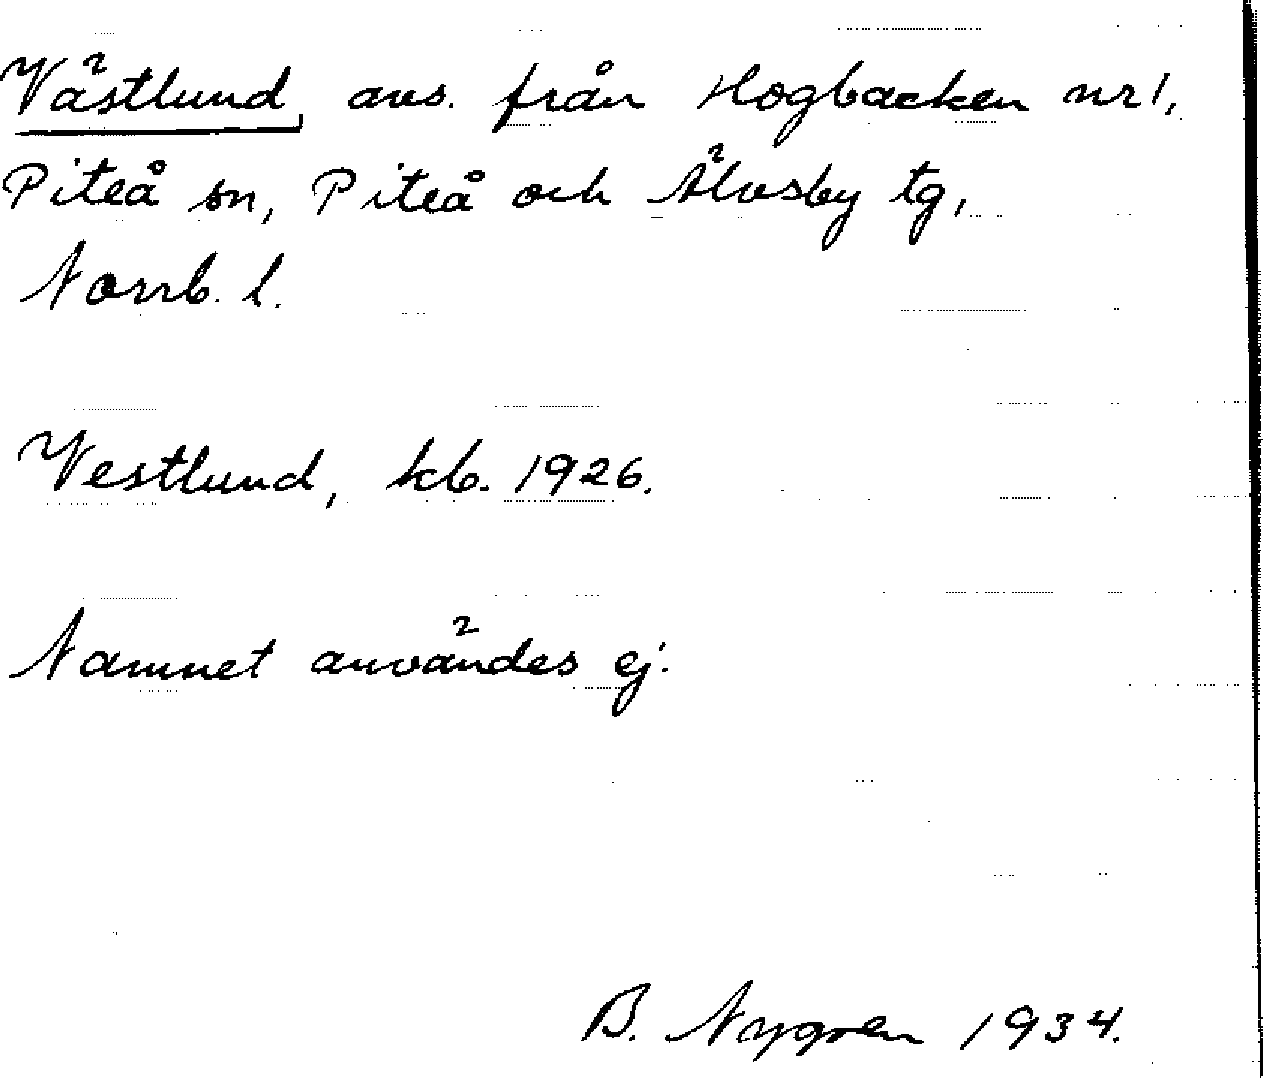 Västlund, avs. från Hogbacken nr 1,
Piteå sn, Piteå och Älvsby tg,
Norrb. l.
Vestlund, kb. 1926.
Namnet användes ej.
B. Nygren 1934.